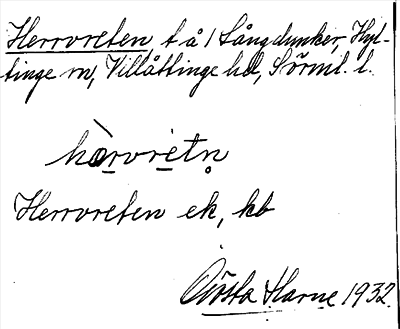 Herrvreten, t å 1 Långdunker, Hyl-
tinge sn, Villåttinge hd, Sörml. l.
hærvretn
Herrvreten ek, kb
Gösta Harne 1932.